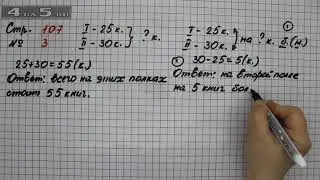 4 на 5.ru
Стр. 107
№ 3
I - 25 к.
II - 30 к.
? к.
25+30=55(к.)
Ответ: всего на этих полках
стоит 55 книг.
I - 25 к.
II - 30 к.
на ? к. б.(м)
①
① 30-25=5(к.)
Ответ: на второй полке
на 5 книг бол